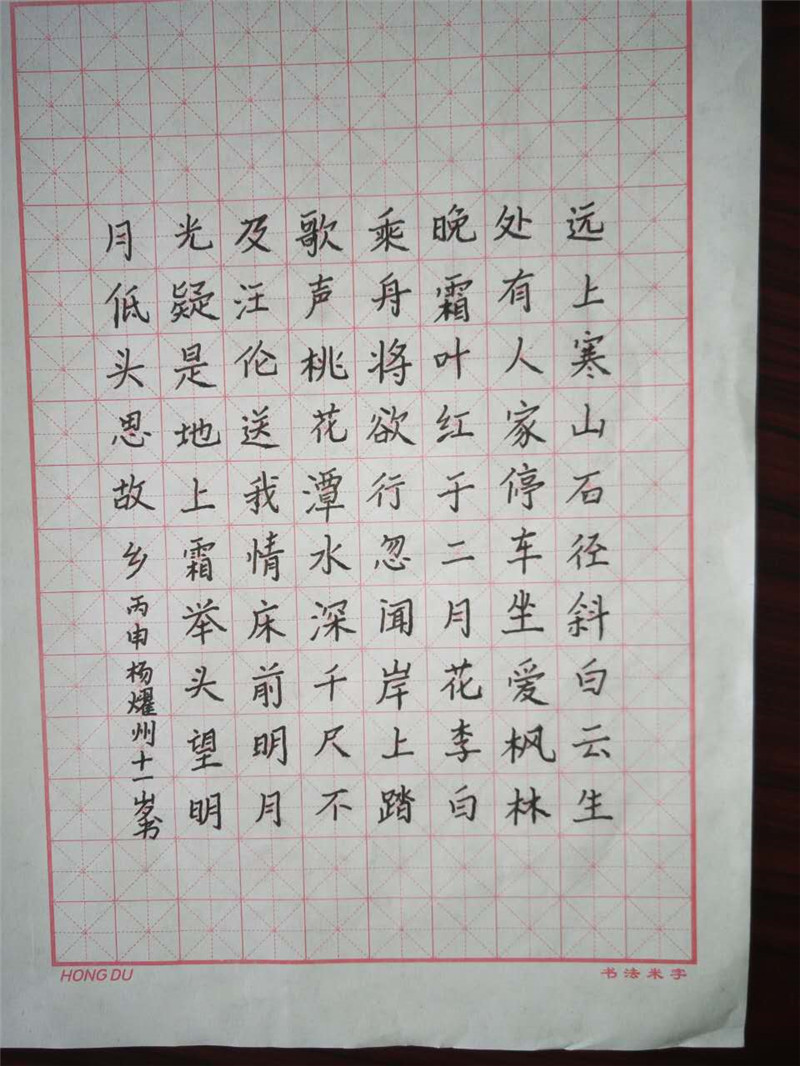 远上寒山石径斜白云生
处有人家停车坐爱枫林
晚霜叶红于二月花李白
乘舟将欲行忽闻岸上踏
歌声桃花潭水深千尺不
及汪伦送我情床前明月
光疑是地上霜举头望明
月低头思故乡丙申杨耀州十一岁书
HONG DU
书法米字